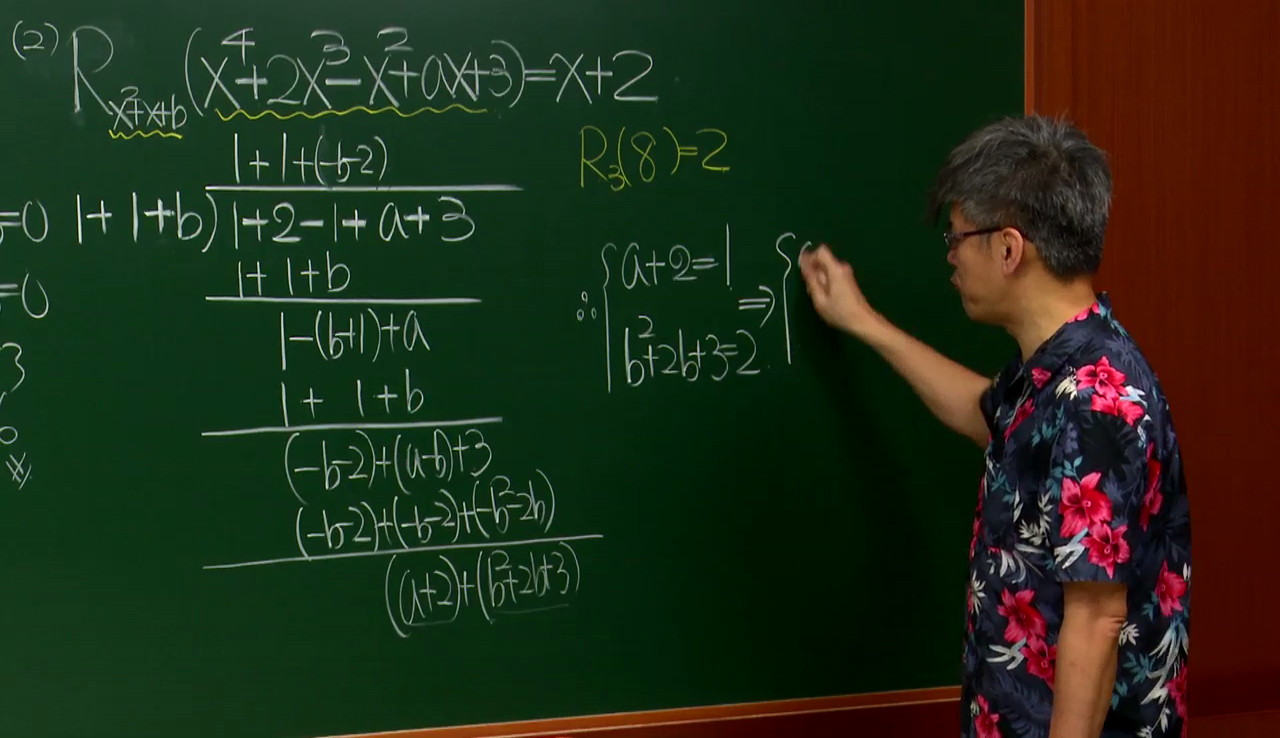 (2) R_{x²+x+b}(x⁴+2x³-x²+ax+3)=x+2
R₃(8)=2
1+1+(-b-2)
=0 1+1+b)1+2-1+a+3
=0 1+1+b
1-(b+1)+a
3
1+1+b
(-b-2)+(a-b)+3
(-b-2)+(-b-2)+(-b²-2b)
(a+2)+(b²+2b+3)
∴{a+2=1
b²+2b+3=2
⇒{